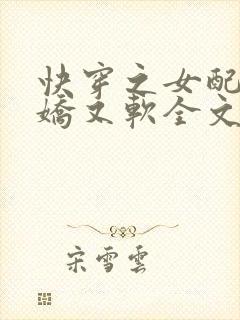 快穿之女配
嬌又軟全文
宋雪雲